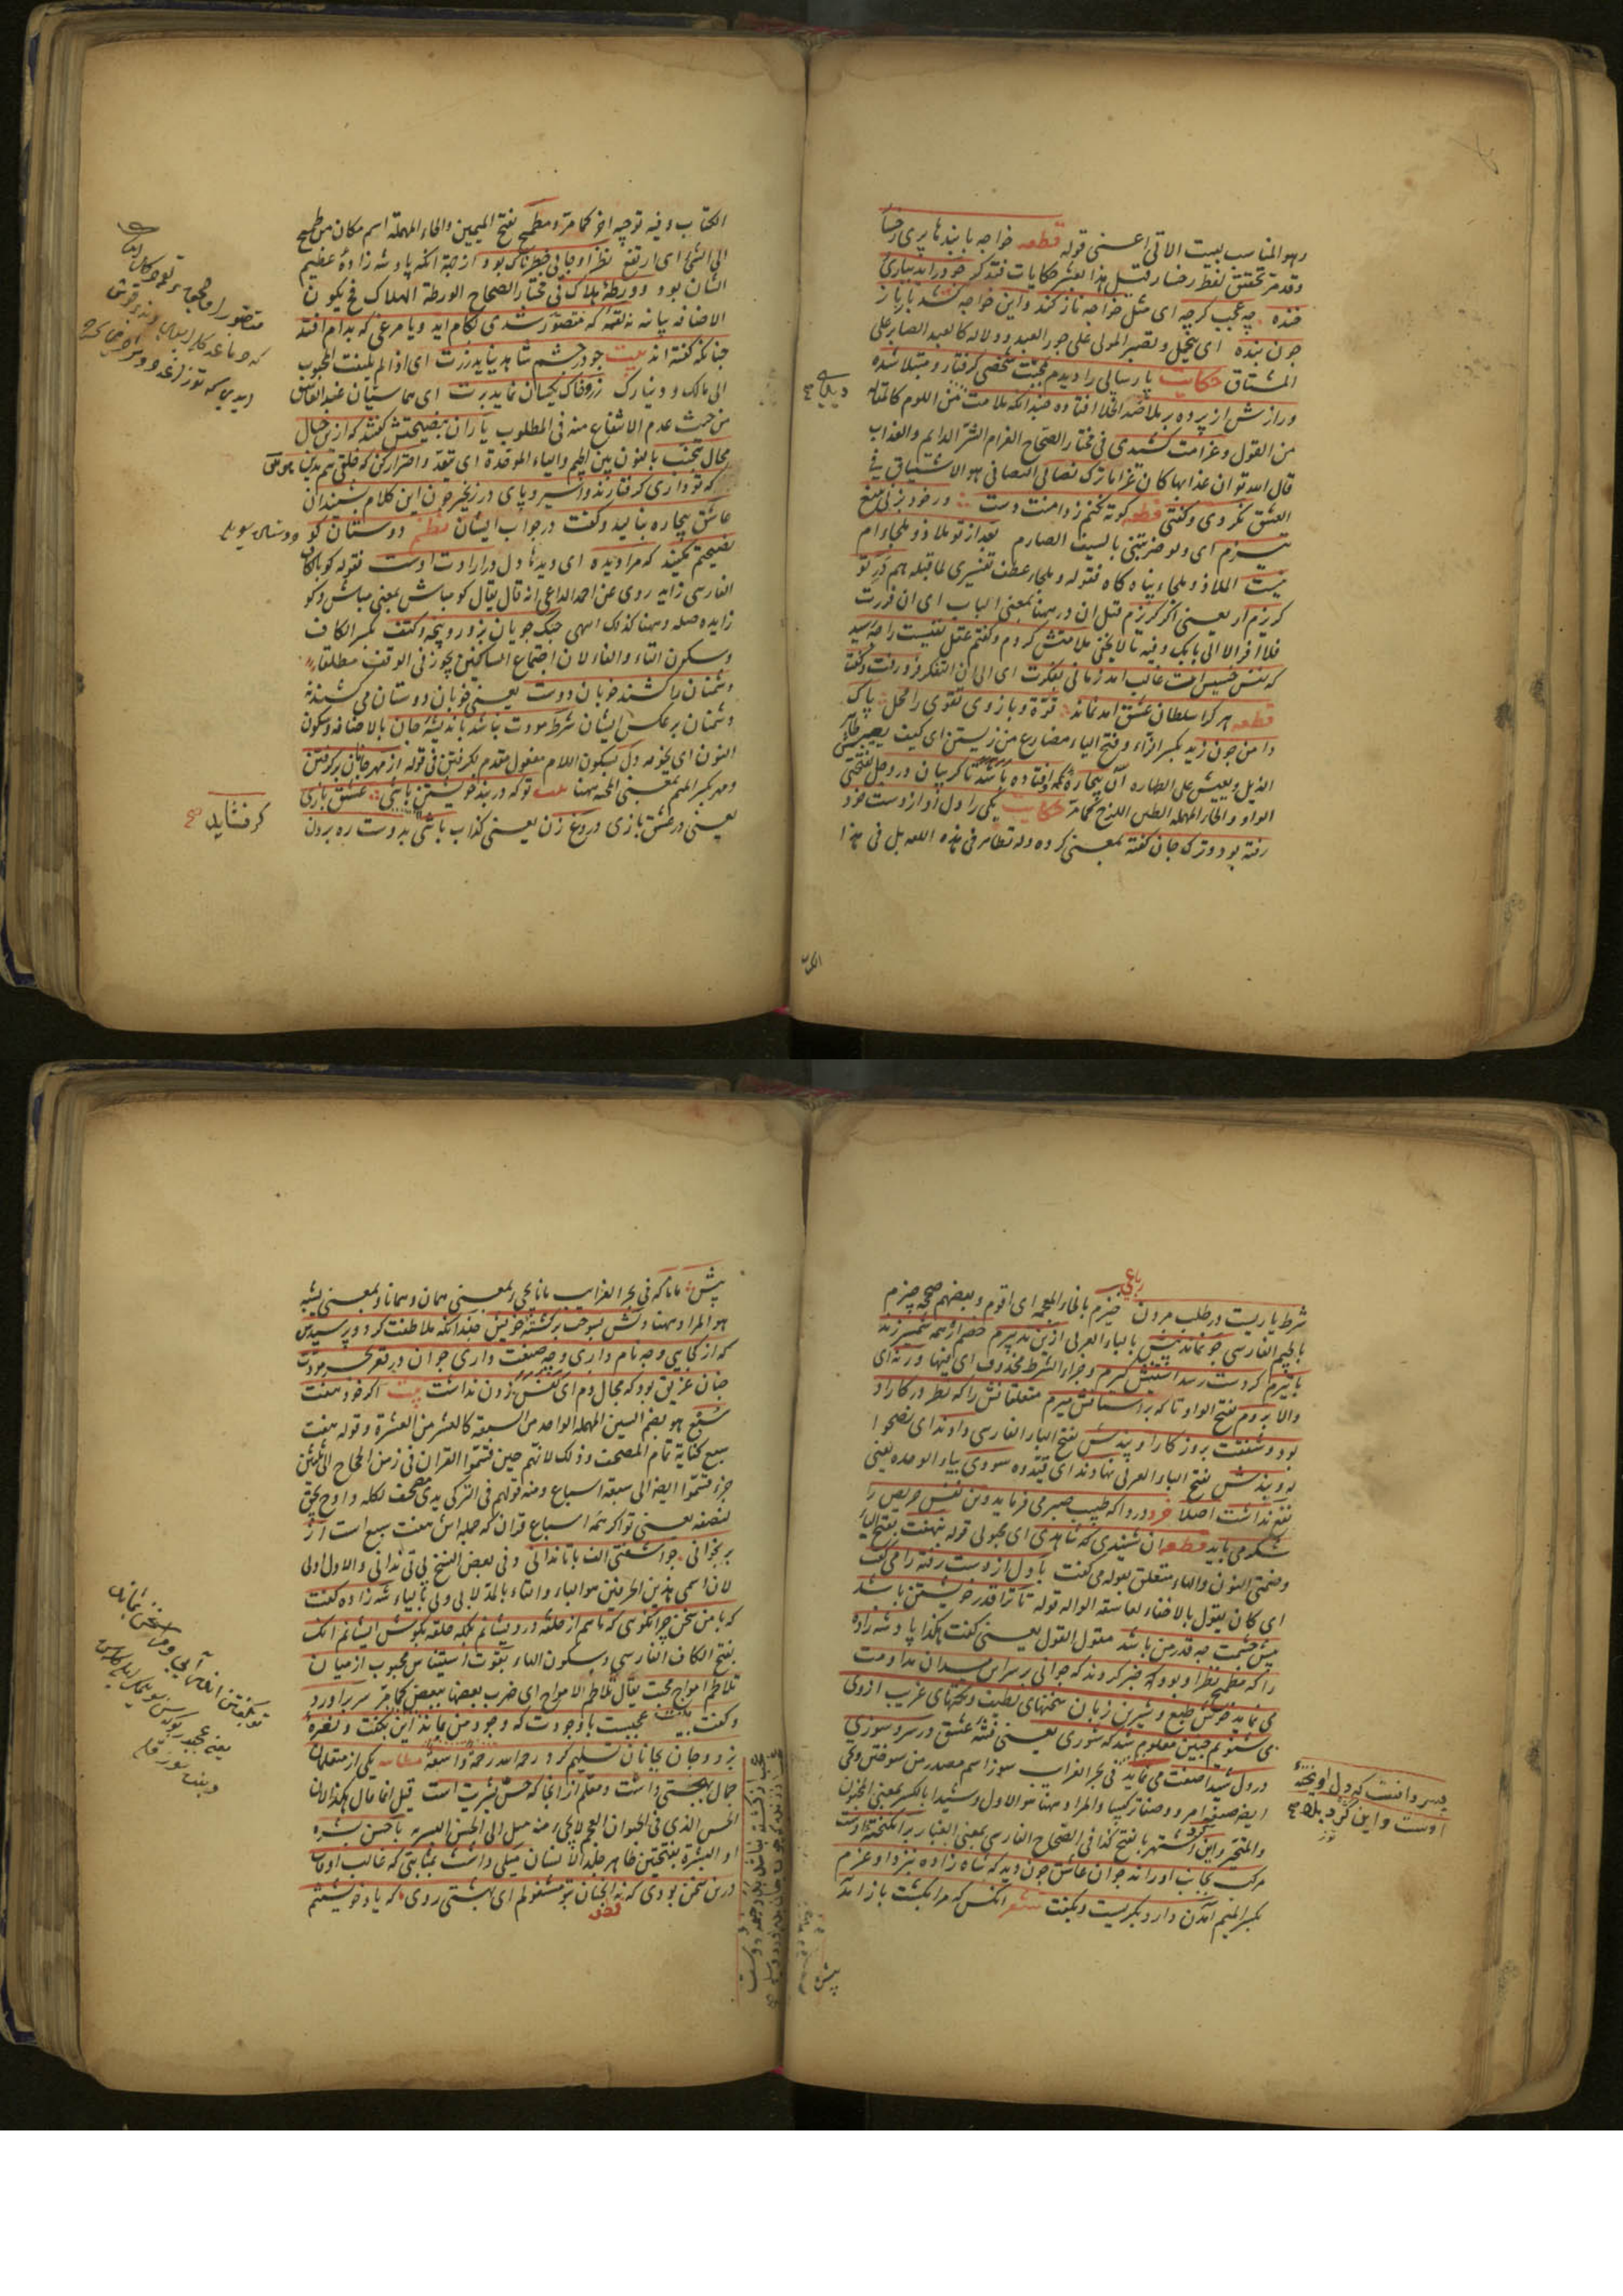 وهو المناسب لبيت الاتی اعنی قوله قطعه خواجه با بندها پری رخسا
وقد مر تحقیق لفظ رخسار قبل هذا بعشر حکایات فتذکر چو درآید ببازی
خنده چه عجب کرچه ای مثل خواجه ناز کند واین خواجه کشد بار ناز
چون بنده ای یتحمل ویصبر المولی علی جور العبد ودلاله کالعبد الصابر علی
المشتاق حکایت پارسایی را دیدم بمحبت شخصی کرفتار ومبتلا شده
ورازش از پرده بر ملا افتاده چندانکه ملامت من اللوم کالمقاله
من القول وغرامت کشیدی فی مختار الصحاح الغرام الشر الدایم والعذاب
قال الله تع ان عذابها کان غراما ترک تصابی التصابی هو الاشتیاق فی
العشق نکردی وکفتی قطعه کوته نکنم ز دامنت دست ور خود بزنی بتیغ
تیزم ای ولو ضربتنی بالسیف الصارم بعد از تو ملاذ وملجاءم
نیست الملاذ وملجاء پناه کاه فقوله وملجاء عطف تفسیری لما قبله هم در تو
کریزم ار یعنی اکر کریزم قیل ان در هنا بمعنی الباب ای ان فررت
فلا افر الا الی بابک وفیه ما لا یخفی ملامتش کردم وکفتم عقل نفیست را چه رسید
که نفس خسیس است غالب امد زمانی بفکرت ای الی ان التفکر فرو رفت وکفت
قطعه هر کجا سلطان عشق امد نماند قوة وبازوی تقوی را محل پاک
دامن چون زید بکسر الزاء وفتح الیاء مضارع من زیستن ای کیف یصیر طاهر
الذیل ویعیش علی الطهاره آن بیچاره که افتاده باشد تا کریبان در وحل بفتحتین
الواو والحاء المهمله الطین اللزج کما مر حکایت یکی را دل از دست خود
رفته بود وترک جان کفته بمعنی کرده وله نظایر فی هذه اللغه بل فی هذا
الکتاب
الکتاب وفیه توجیه اخر کما مر ومطمح بفتح المیمین والحاء المهمله اسم مکان من طمح
الی الشئ ای ارتفع نظر او جایی خطرناک بود از جهة انکه پادشه زاده عظیم
الشان بود وورطه هلاک فی مختار الصحاح الورطة الهلاک فح یکون
الاضافه بیانه نه لقمه که متصور شدی بکام اید ویا مرغی که بدام افتد
چنانکه کفته اند بیت چو در چشم شاهد نیاید زرت ای اذا لم یلتفت المحبوب
الی مالک ودینارک زر وخاک یکسان نماید برت ای هما سیان عند العاشق
من حیث عدم الانتفاع منه فی المطلوب یاران بنصیحتش کفتند که ازین خیال
محال تجنب بالنون بین الجیم والیاء الموحدة ای تبعد واحتراز کن که خلقی هم بدین هوس
که تو داری کرفتارند واسیر وپای در زنجیر چون این کلام شنید آن
عاشق بیچاره بنالید وکفت در جواب ایشان نظم دوستان کو
نصیحتم مکنید که مرا دیده ای دیدها دل در ارادت اوست فقوله کو بالکاف
الفارسی زایده روی عن احمد الداعی انه قال یقال کو مباش بمعنی مباش وکو
زایده صله وههنا کذلک انتهی جنک جویان بزور وپنجه وکتف بکسر الکاف
وسکون التاء والفاء لان اجتماع الساکنین یجوز فی الوقف مطلقا
دشمنان را کشند خوبان دوست یعنی خوبان دوستان می کشند نه
دشمنان بر عکس ایشان شرط مودت نباشد باندیشه جان بالاضافه وسکون
النون ای بخوفه دل بسکون اللام مفعول مقدم لکرفتن فی قوله از مهر جانان برکرفتن
ومهر بکسر المیم بمعنی المحبه ههنا بیت تو که در بند خویشتن باشی عشق بازی
یعنی در عشق بازی دروغ زن یعنی کذاب باشی بدوست ره بردن
کر نشاید صح
رباعی
شرط یاریست در طلب مردن خیزم بالخاء المعجمه ای اقوم وبعضهم صححه چیزم
بالجیم الفارسی چو نماند پیش بالباء العربی ازین تدبیرم خصم از همه شمشیر زند
یا تیرم کر دست رسد آستینش کیرم وجزاء الشرط محذوف ای فبها ورنه ای
والا بروم بفتح الواو تا که بر استانش میرم متعلقانش را که نظر در کار او
بود وشفقت بروز کار او پندش بفتح الباء الفارسی دادند ای نصحوا
له وبندش بفتح الباء العربی نهادند ای قیدوه سودی بیاء الوحده یعنی
نفع نداشت اصلا فرد دردا که طبیب صبر می فرماید وین نفس حریص را
شکر می باید قطعه ان شنیدی که شاهدی ای محبوبی قوله بنهفت بفتح الباء
وضمتی النون والهاء متعلق بقوله می کفت با دل از دست رفته را می کفت
ای کان یقول بالاخفاء لعاشقه الواله قوله تا ترا قدر خویشتن باشد
پیش چشمت چه قدر من باشد مقول القول یعنی کفت هکذا پادشه زاده
را که مطمح نظر او بود خبر کردند که جوانی بر سر این میدان مداومت
می نماید خوش طبع وشیرین زبان سخنهای لطیف ونکتهای غریب ازوی
می شنویم چنین معلوم شد که شوری یعنی فتنه عشق در سر وسوزی
در دل شیدا صفت می نماید فی بحر الغرایب سوز اسم مصدر من سوختن ویجی
ایضا صیغه امر ووصف ترکیبیا والمراد ههنا هو الاول وشیدا بالکسر بمعنی المجنون
والمتحیر واین کرد شهر بالفتح کذا فی الصحاح الفارسی بمعنی الغبار بر انکیخته اوست
مرکب بجانب او راند جوان عاشق چون دید که شاه زاده نزد او عزم
بکسر المیم آمدن دارد بکریست وبکفت شعر انکس که مرا بکشت باز امد
پیسر دانست که دل آویخته
اوست واین کرد بلا صح
پیش
پیش مانا که فی بحر الغرایب مانا یجی بمعنی همان وهمانا وبمعنی یشبه
هو المراد ههنا دلش بسوخت بر کشته خویش چندانکه ملاطفت کرد وپرسیدش
که از کجایی وچه نام داری وچه صنعت داری جوان در قعر بحر مودت
چنان غریق بود که مجال دم ای نفس زدن نداشت بیت اکر خود هفت
سبع هو بضم السین المهمله الواحد من السبعة کالعشر من العشرة وقوله هفت
سبع کنایة تمام المصحف وذلک لانهم حین قسموا القران فی زمن الحجاج الی ثلثین
جزء قسموا ایضا الی سبعة اسباع ومنه قولهم فی الترکی یدی مصحف لکله واوح یحق
لنصفه یعنی تو اکر همه اسباع قران که جمله اش هفت سبع است از
بر بخوانی چو آشفتی الف باتا ندانی وفی بعض النسخ بی تی ندانی والاول اولی
لان اسمی هذین الحرفین هو الباء والتاء بالمد لا بی وتی بالیاء شه زاده کفت
که با من سخن چرا نکویی که تا هم از حلقه درویشانم بلکه حلقه بکوش ایشانم انک
بفتح الکاف الفارسی وسکون الهاء بقوت استیناس محبوب از میان
تلاطم امواج محبت یقال تلاطم الامواج ای ضرب بعضها ببعض کما مر سر بر اورد
وکفت بیت عجبست با وجودت که وجود من بماند این بکفت ونعره
بزد وجان بجانان تسلیم کرد رحمه الله رحمة واسعة حکایت یکی از متعلمان
جمال بهجتی داشت ومعلم از انجا که حس بشریت است قیل انما قال هکذا لان
الحس الذی فی الحیوان العجم لا یجی منه میل الی الحسن البشره با حسن بشره
او البشره بفتحتین ظاهر جلد الانسان میلی داشت بمثابتی که غالب اوقات
درین سخن بودی که نه انچنان بتو مشغولم ای بهشتی روی که یاد خویشتم
قطعه